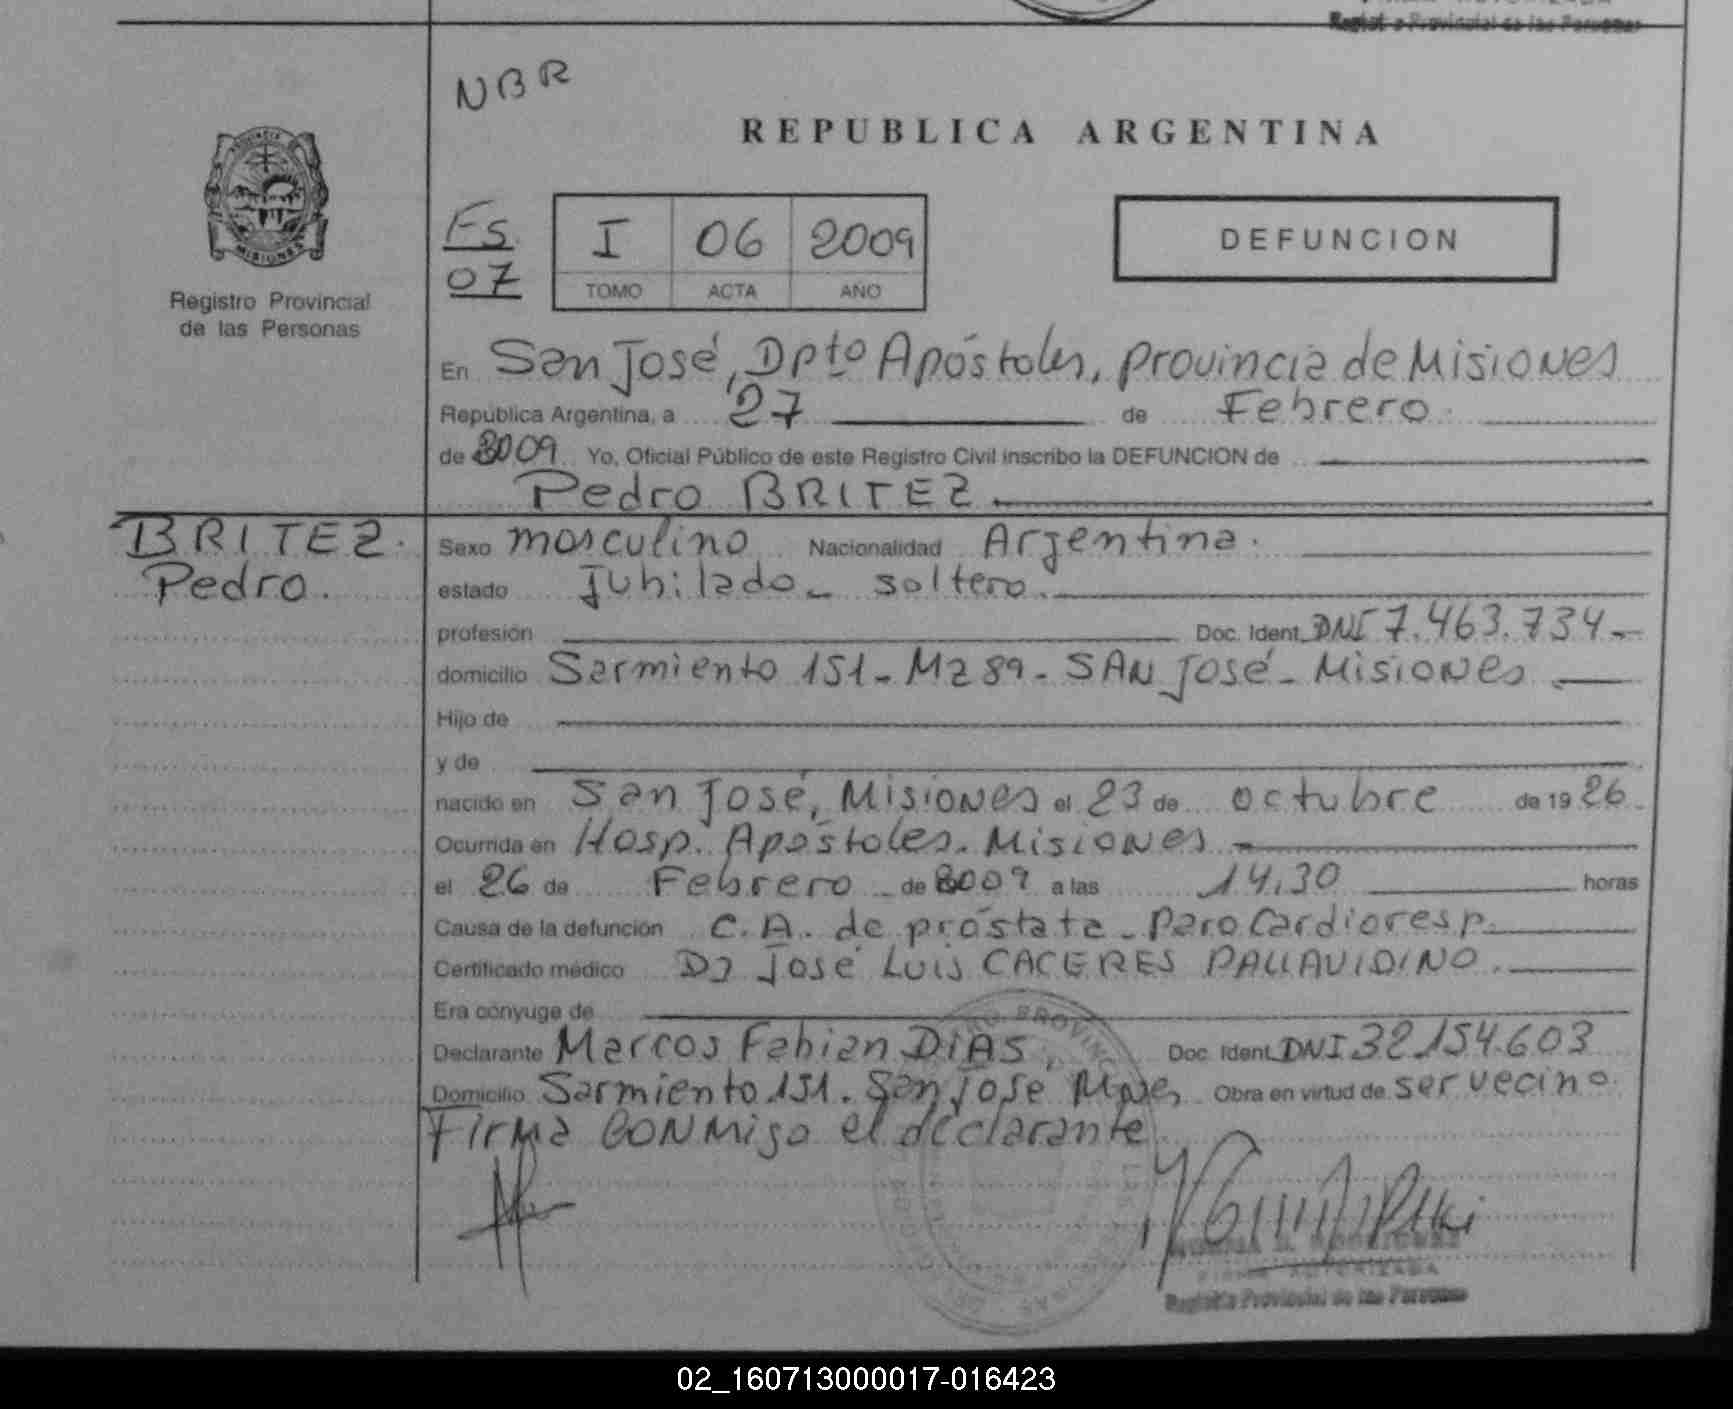 Registro Provincial de las Personas
NBR
REPUBLICA ARGENTINA
PROVINCIA
MISIONES
Registro Provincial
de las Personas
Fs.
07
I 06 2009
TOMO ACTA AÑO
DEFUNCION
En San José, Dpto Apóstoles, provincia de Misiones
República Argentina, a 27 de Febrero.
de 2009 Yo, Oficial Público de este Registro Civil inscribo la DEFUNCION de
Pedro BRITEZ
BRITEZ.
Pedro.
Sexo masculino Nacionalidad Argentina.
estado Jubilado - soltero.
profesión Doc. Ident. DNI 7.463.734-
domicilio Sarmiento 151 - Mz 89 - SAN José - Misiones
Hijo de
y de
nacido en San José, Misiones el 23 de octubre de 1926
Ocurrida en Hosp. Apóstoles. Misiones
el 26 de Febrero de 2009 a las 14,30 horas
Causa de la defunción C.A. de próstata - Paro Cardioresp.
Certificado médico Dr José Luis CACERES PALLAVIDINO.
Era cónyuge de
Declarante Marcos Fabian DIAS, Doc. Ident. DNI 32.154.603
Domicilio Sarmiento 151. San José, Mnes, Obra en virtud de ser vecino.
Firma CONMigo el declarante
Registro Provincial de las Personas
02_160713000017-016423